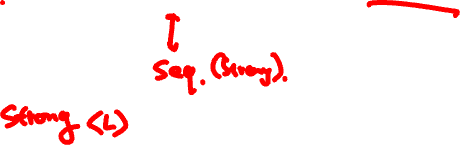 Seq. (Strong).
Strong <L)